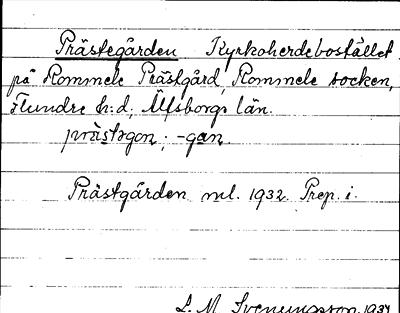 Prästegården Kyrkoherdebostället
på Rommele Prästgård, Rommele socken,
Flundre h:d, Älfsborgs län.
prästagon; -gan.
Prästgården ml. 1932. Prep. i.
L. M. Svenungsson 1934